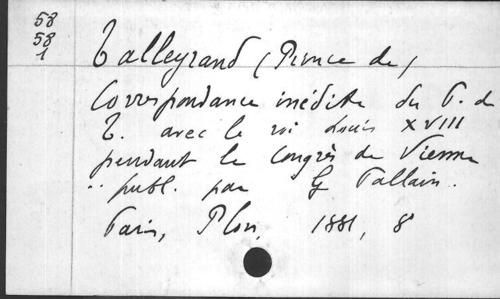 58
58
1
Talleyrand (Prince de)
Correspondance inédite du P. de
T. avec le roi Louis XVIII
pendant le Congrès de Vienne
.. publ. par G Pallain.
Paris, Plon, 1881, 8°